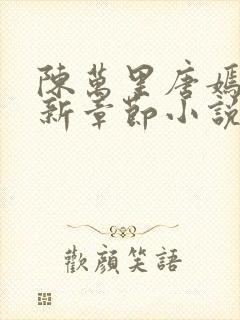 陳萬里唐嫣
新章節小說
歡顏笑語